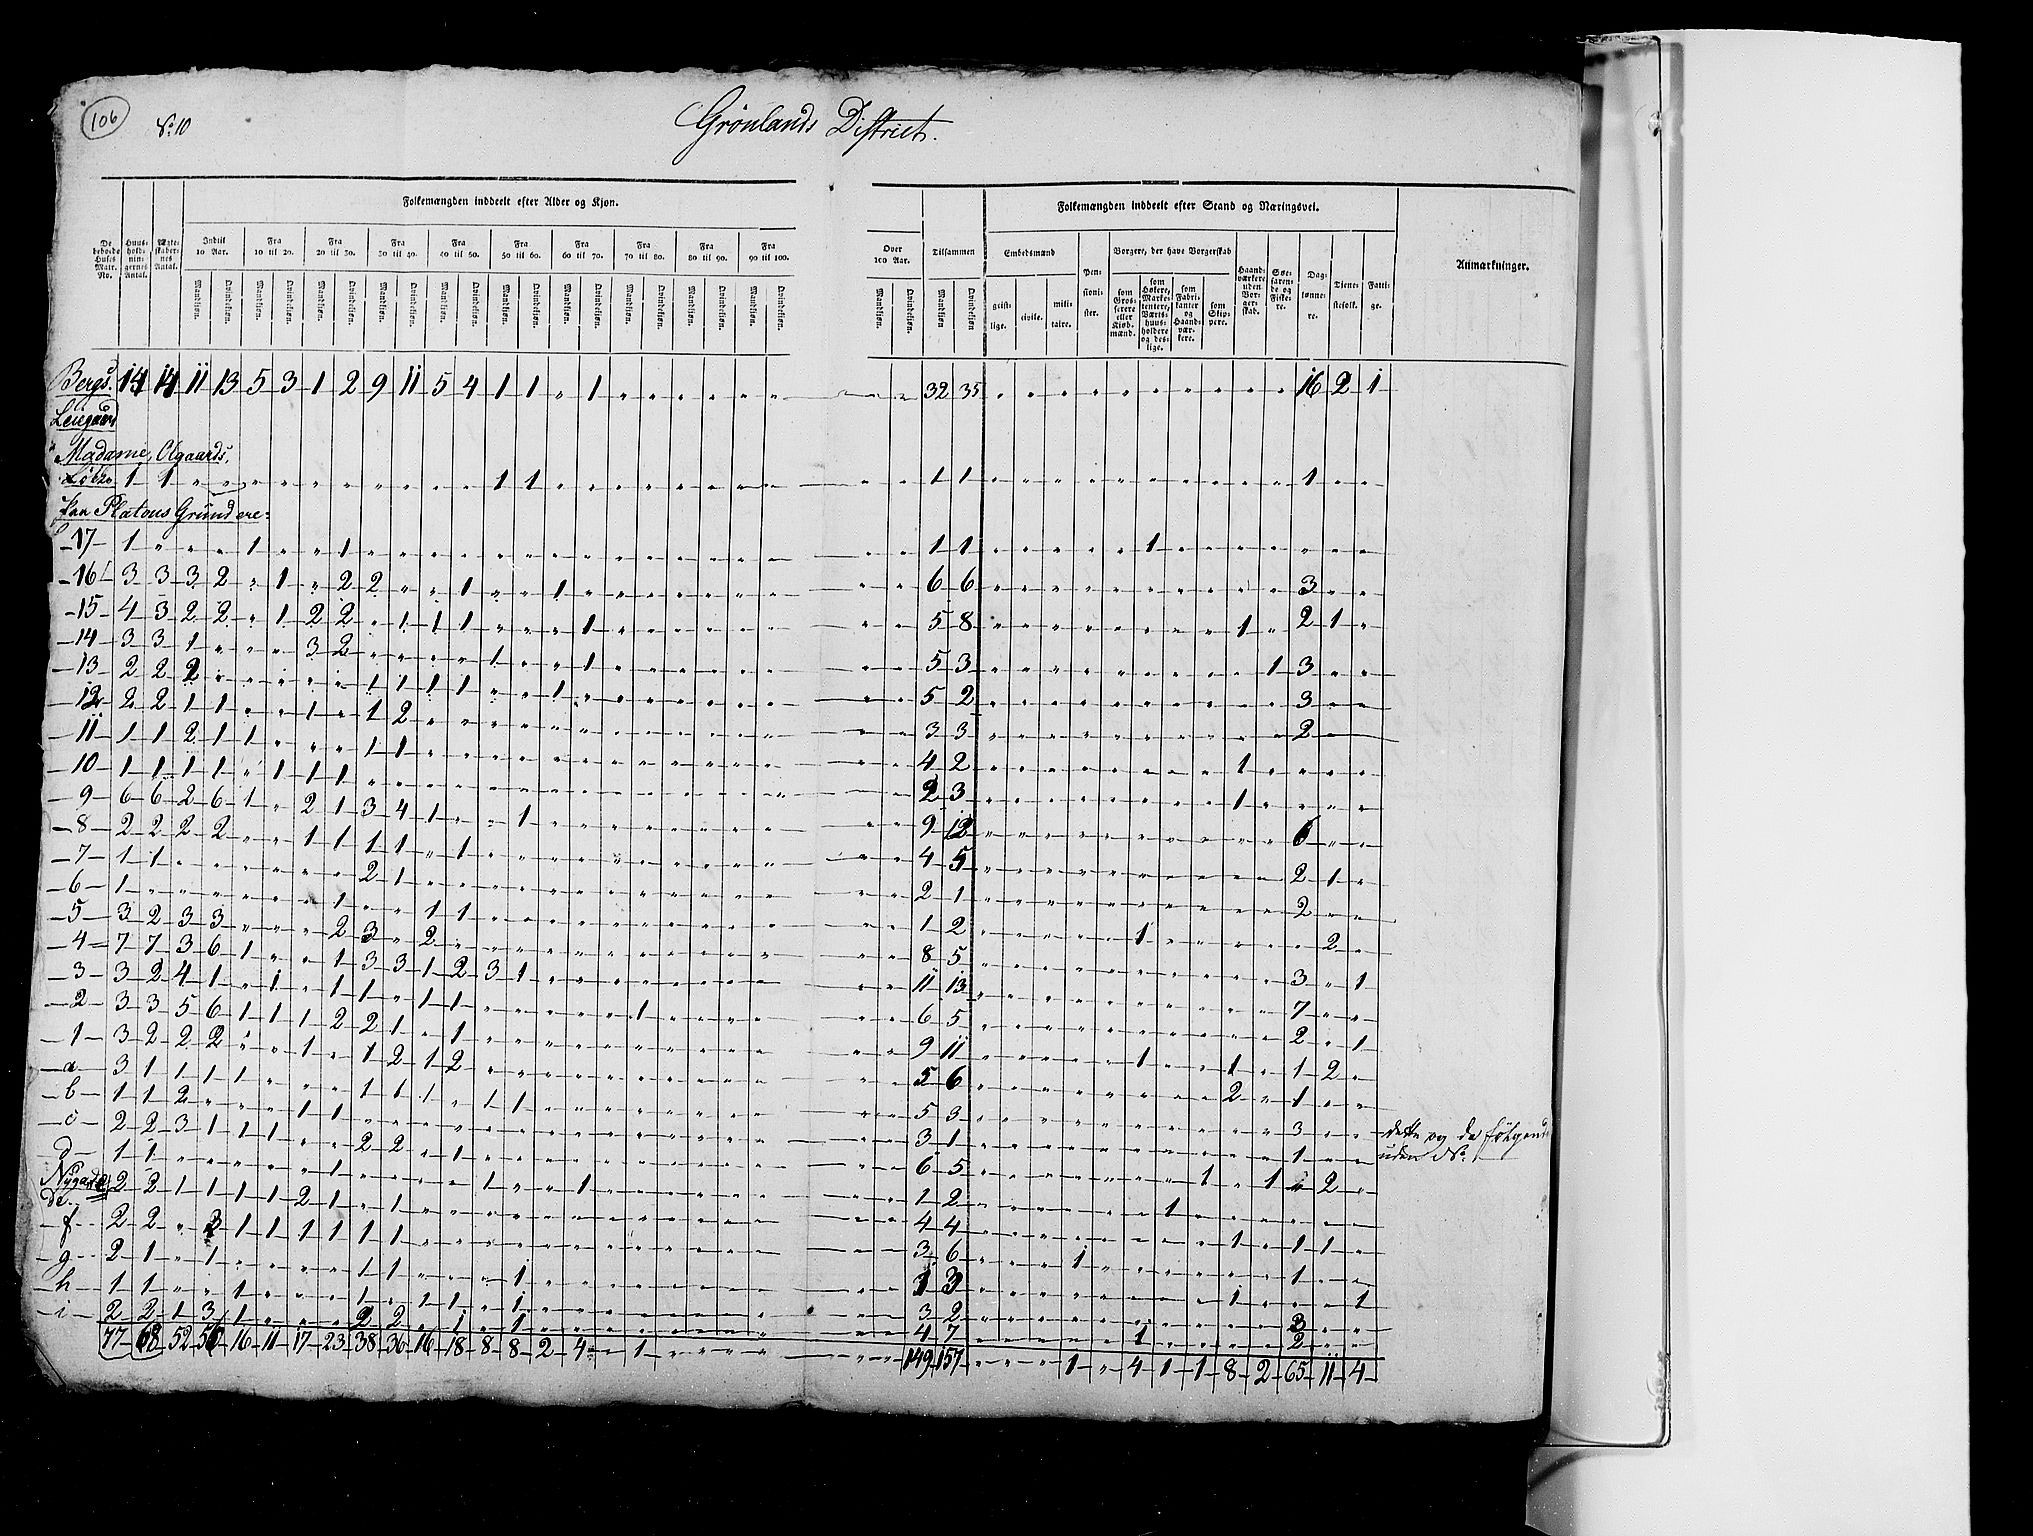 106
No 10
Grønlands District.
Folkemængden inddeelt efter Alder og Kjøn.
Folkemængden inddeelt efter Stand og Næringsvei.
De beboede Huses Matr. No.
Huusholdningernes Antal.
Ægteskabernes Antal.
Indtil 10 Aar.
Fra 10 til 20.
Fra 20 til 30.
Fra 30 til 40.
Fra 40 til 50.
Fra 50 til 60.
Fra 60 til 70.
Fra 70 til 80.
Fra 80 til 90.
Fra 90 til 100.
Over 100 Aar.
Tilsammen
Mandkiøn. Qvindekiøn.
Embedsmænd
geistlige. civile. militaire.
Pensionister.
Borgere, der have Borgerskab
som Grosserere eller Kiøbmænd.
som Høkere, Marketentere, Værtshuusholdere og deslige.
som Fabrikanter og Haandværkere.
som Skippere.
Haandværkere uden Borgerskab.
Søefarende og Fiskere.
Daglønnere.
Tienestefolk.
Fattige.
Anmærkninger.
Bergs 14 14 11 13 5 3 1 2 9 11 5 4 1 1 " 1 32 35 16 2 1
Leiegaard
Madame Olgaards
Løkke 1 1 1 1 1 1 1
paa Platous Grund ere:
17 1 " " " 1 " " 1 1 1 1
16 3 3 3 2 " 1 " 2 2 " " 1 " " 1 6 6 3
15 4 3 2 2 " 1 2 2 " 1 1 1 " " " 1 5 8 1 " 2 1
14 3 3 1 " " " 3 2 " " " " 1 " " 1 5 3 1 3
13 2 2 2 " " " " " 1 1 1 1 " " 1 5 2 3
12 2 2 1 1 " " 1 " 1 2 3 3 2
11 1 1 2 1 1 " " " 1 1 4 2 1
10 1 1 1 1 " 1 1 1 2 3 1
9 6 6 2 6 1 " 2 1 3 4 1 " " 1 9 12 6
8 2 2 2 2 " " 1 1 1 1 " 1 4 5 2 1
7 1 1 " " " " " " 2 1 2 1 2
6 1 " " " " " " 1 " " 1 1 1 2 1 2
5 3 2 3 3 " " " 2 3 " 2 8 5 3 " 1
4 7 7 3 6 1 " " 1 3 3 1 2 3 1 11 13 7
3 3 2 4 1 " 1 " 1 1 " 1 1 " " " " " 1 6 5 2 " 1
2 3 3 5 6 1 1 1 2 2 1 " 1 9 11 1 1 " 1 2
1 3 2 2 2 " " 1 " 1 2 1 2 5 6 2 " 1
a 3 1 1 1 1 " " " 1 1 1 " 1 1 5 3 3
b 1 1 2 " " " 1 1 3 1 1
dette og de følgende
uden No.
c 2 2 3 1 1 1 " " 2 2 " 1 6 5 1 " 1 " 2
d 1 1 " " " " " 1 " " " " 1 " " 1 1 2 1
Nygarde
de. 2 2 1 1 1 1 2 1 " 1 4 4 1 " 1 1
f 2 2 " 3 1 1 1 1 1 1 3 6 1 1
g 2 1 " 1 " " " " 1 1 " " " 1 1 3 1 1
h 1 1 " " 1 " " " 1 " 1 1 " 1 3 2 3
i 2 2 1 3 1 " " " 2 2 " 1 " 1 4 7 1 2
77 68 52 56 16 11 17 23 38 36 16 18 8 8 2 4 " 1 149 157 1 " 4 1 1 8 2 65 11 4